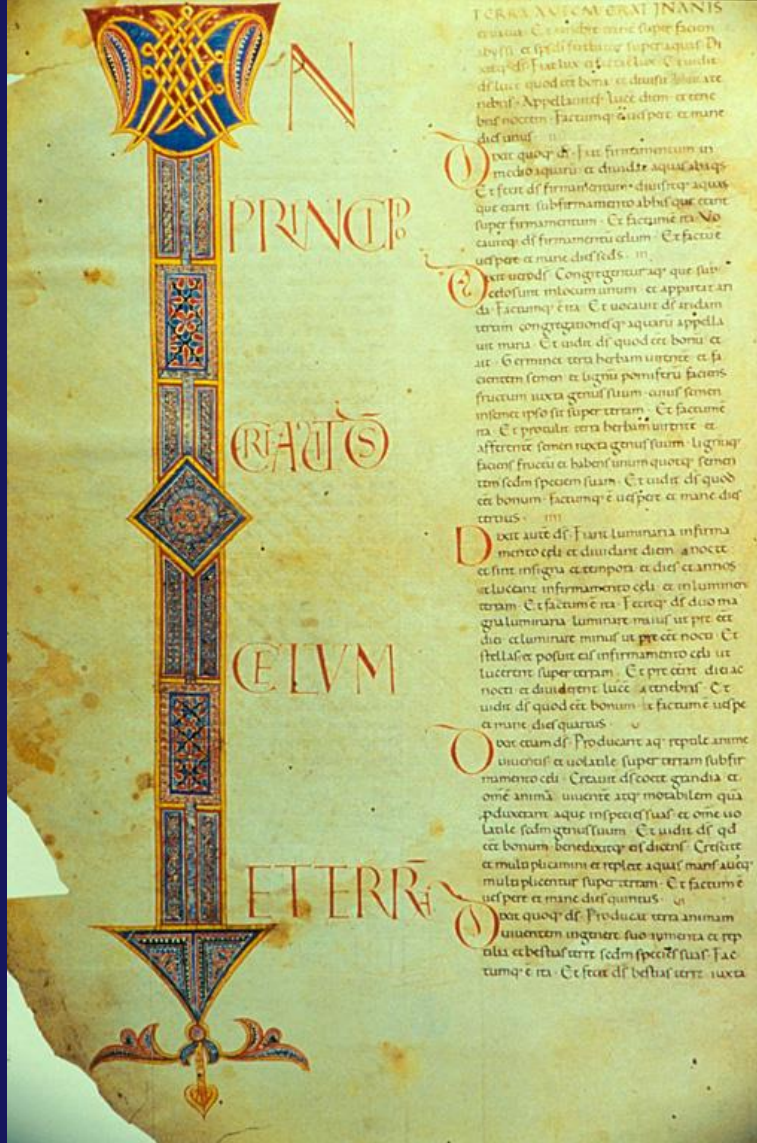 IN
PRINCIPIO
CREAVIT DS
CELVM
ET TERRĀ
TERRA AUTEM ERAT INANIS
et vacua · Et tenebre erant super faciem
abyssi · et sps di ferebatur super aquas · Di
xitq; ds · Fiat lux · et facta e lux · Et uidit
ds lucē quod eet bona · et diuisit lucē a te
nebris · Appellauitq; lucē diem · et tene
bras noctem · Factumq; ē uespere et mane
dies unus ·
Dixit quoq; ds · Fiat firmamentum in
medio aquarū · et diuidat aquas ab aqs ·
Et fecit ds firmamentum · diuisitq; aquas
que erant sub firmamento ab his que erant
super firmamentum · Et factum ē ita · Vo
cauitq; ds firmamentū celum · Et factū ē
uespere et mane dies scds · III
Dixit uero ds · Congregentur aq; que sub
celo sunt in locum unum · et appareat ari
da · Factumq; ē ita · Et uocauit ds aridam
terram · congregationesq; aquarū appella
uit maria · Et uidit ds quod eet bonū · et
ait · Germinet terra herbam uirentē · et fa
cientem semen · et lignū pomiferū faciens
fructum iuxta genus suum · cuius semen
in semet ipso sit super terram · Et factum ē
ita · Et protulit terra herbam uirentē · et
afferentē semen iuxta genus suum · lignūq;
faciens fructū · et habens unum quotq; semen
tem scdm speciem suam · Et uidit ds quod
eet bonum · factumq; ē uespere et mane dies
tertius · IIII
Dixit autē ds · Fiant luminaria in firma
mento celi · et diuidant diem a nocte
et sint in signa et tempora · et dies et annos
et luceant in firmamento celi · et inluminen
terram · Et factum ē ita · Fecitq; ds duo ma
gna luminaria · luminare maius ut pre eet
diei · et luminare minus ut pre eet nocti · Et
stellas · et posuit eas in firmamento celi ut
lucerent super terram · Et pre eent diei ac
nocti · et diuiderent lucē a tenebris · Et
uidit ds quod eet bonum · et factum ē uespe
et mane dies quartus · V
Dixit etiam ds · Producant aq; reptile anime
uiuentis · et uolatile super terram sub fir
mamento celi · Creauit ds coete grandia · et
omē animā uiuentē atq; motabilem quā
pduxerant aque in species suas · et omē uo
latile scdm genus suum · Et uidit ds qd
eet bonum · benedixitq; eis dicens · Crescite
et multiplicamini et replete aquas maris auesq;
multiplicentur super terram · Et factum ē
uespere et mane dies quintus · VI
Dixit quoq; ds · Producat terra animam
uiuentem in genere suo · iumenta et rep
tilia · et bestias terre scdm species suas · Fac
tumq; ē ita · Et fecit ds bestias terre iuxta